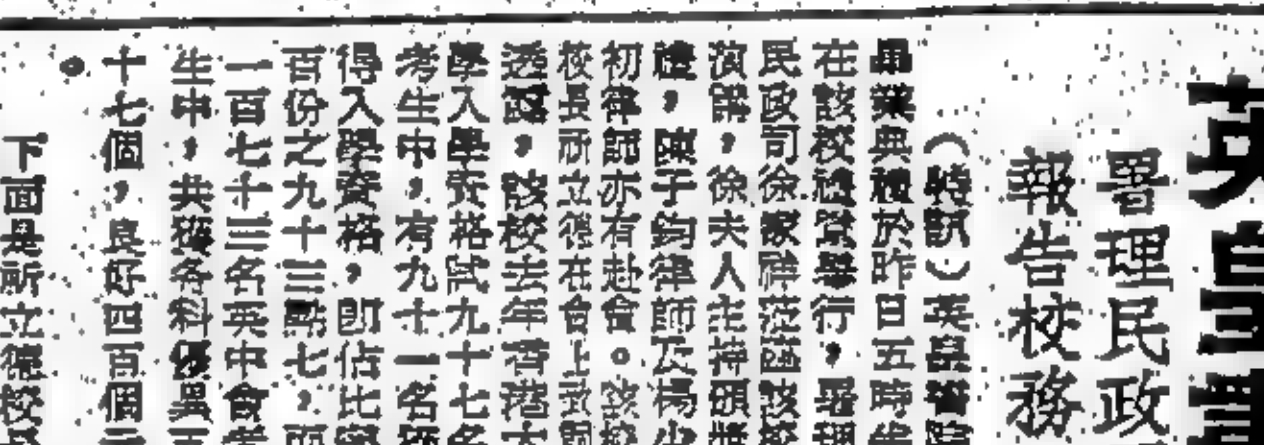 英皇書
署理民政
報告校務
（特訊）英皇書院
畢業典禮於昨日五時半
在該校禮堂舉行，署理
民政司徐家祥蒞臨該校
演講，徐夫人主持頒獎
禮，陳子鈞律師及楊少
初律師亦有赴會。該校
校長祈立德在會上致詞
透露，該校去年香港大
學入學資格試九十七名
考生中，有九十一名獲
得入學資格，即佔比率
百份之九十三點七，而
一百七十三名英中會考
生中，共獲各科優異五
十七個，良好四百個
。
下面是祈立德校